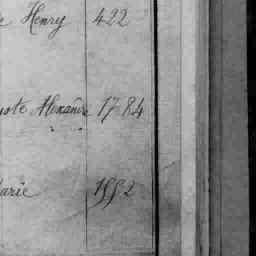 Henry 422
Alexandre 1784
arie 1992